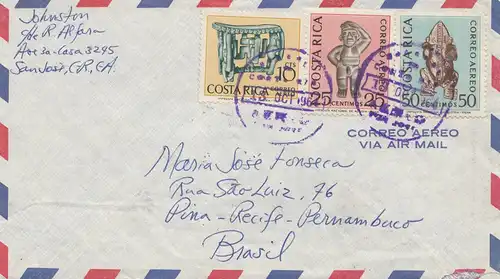 Johnston
San José, C.R., C.A.
COSTA RICA
CORREO AEREO
10
COSTA RICA
CORREO AEREO
25 CENTIMOS 25
COSTA RICA
CORREO AEREO
50 CENTIMOS 50
13 OCT 196
CORREO AEREO
VIA AIR MAIL
Maria José Fonseca
Rua São Luiz, 76
Pina - Recife - Pernambuco
Brasil